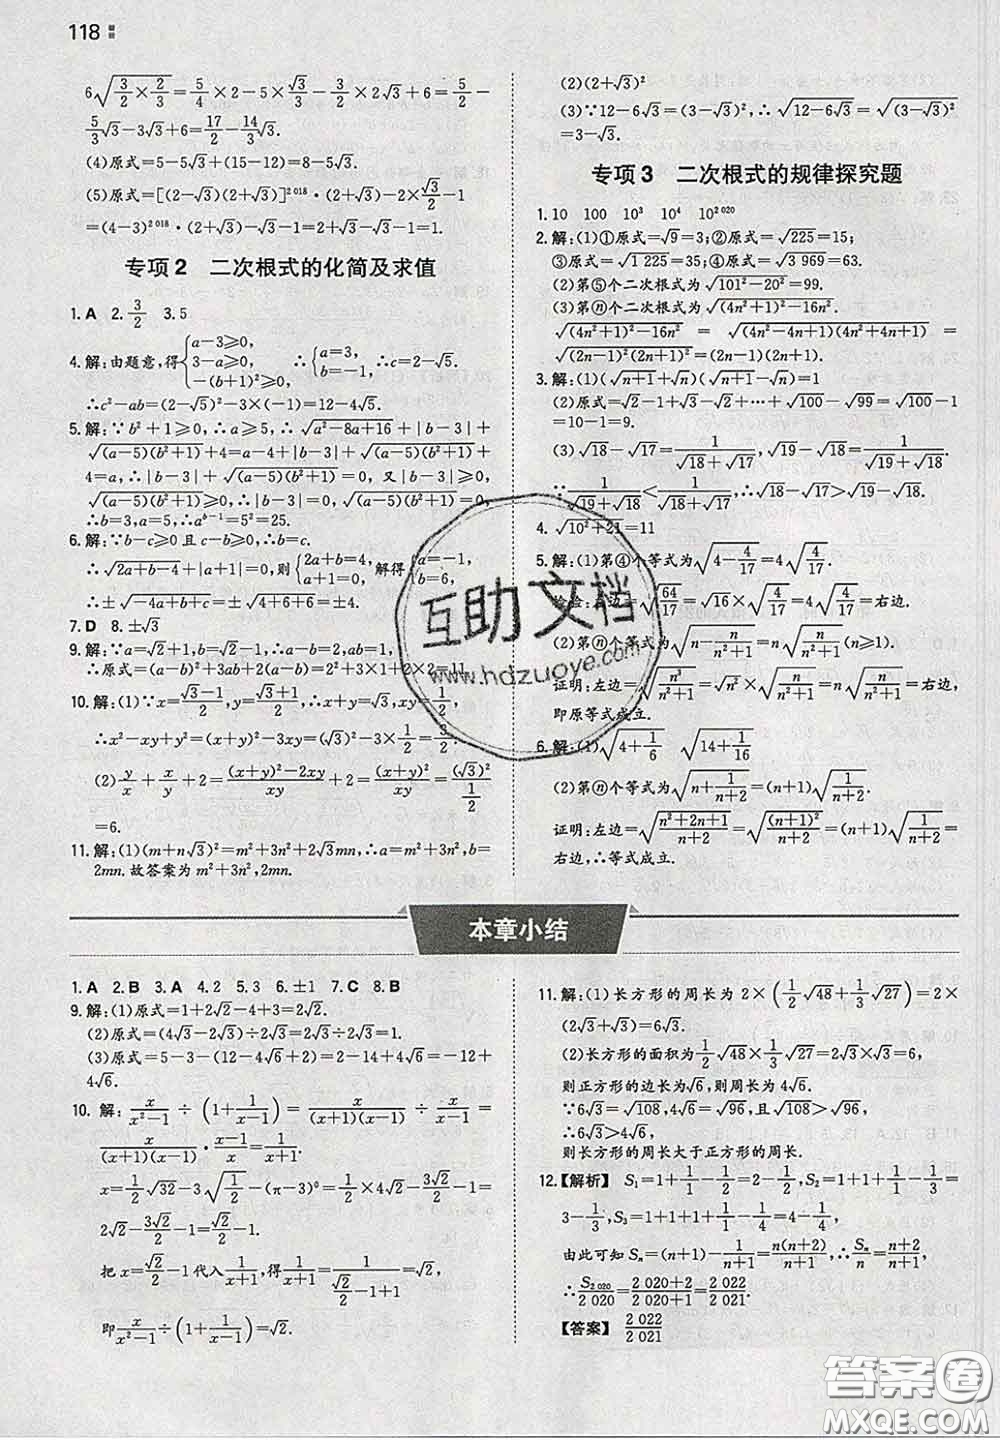 118
6√(3/2×2/3)=5/4×2-5×√3/3-5/2×2√3+6=5/2-
5/3√3-3√3+6=17/2-14/3√3.
(4)原式=5-5√3+(15-12)=8-5√3.
(5)原式=[(2-√3)(2+√3)]²⁰¹⁸·(2+√3)-2×√3/2-1
=(4-3)²⁰¹⁸·(2+√3)-√3-1=2+√3-√3-1=1.
专项2 二次根式的化简及求值
1.A 2.3/2 3.5
4.解:由题意,得{a-3≥0, 3-a≥0, -(b+1)²≥0 ∴{a=3, b=-1, ∴c=2-√5.
∴c²-ab=(2-√5)²-3×(-1)=12-4√5.
5.解:∵b²+1>0,∴a≥5,∴√(a²-8a+16)+|b-3|+
√((a-5)(b²+1))=a-4+|b-3|+√((a-5)(b²+1))+
4=a,∴|b-3|+√((a-5)(b²+1))=0,又|b-3|≥0,
√((a-5)(b²+1))≥0,∴b-3=0,√((a-5)(b²+1))=0.
∴b=3,a=5,∴a^(b-1)=5²=25.
6.解:∵b-c≥0且c-b≥0,∴b=c.
∴√(2a+b-4)+|a+1|=0,则{2a+b=4, a+1=0, 解得{a=-1,
∴±√(-4a+b+c)=±√16=±4.
7.D 8.±√3
9.解:∵a=√2+1,b=√2-1,∴a-b=2,ab=1,
∴原式=(a-b)²+3ab+2(a-b)=2²+3×1+2×2=11.
10.解:(1)∵x=(√3-1)/2,y=(√3+1)/2,∴x+y=√3,xy=1/2,
∴x²-xy+y²=(x+y)²-3xy=(√3)²-3×1/2=3/2.
(2)y/x+x/y+2=((x+y)²-2xy)/xy+2=(x+y)²/xy=(√3)²/(1/2)
=6.
11.解:(1)(m+n√3)²=m²+3n²+2√3mn,∴a=m²+3n²,b=
2mn.故答案为m²+3n²,2mn.
(2)(2+√3)²
(3)∵12-6√3=(3-√3)²,∴√(12-6√3)=√((3-√3)²)
=3-√3.
专项3 二次根式的规律探究题
1.10 100 10³ 10⁴ 10²⁰²⁰
2.解:(1)①原式=√9=3;②原式=√225=15;
③原式=√1 225=35;④原式=√3 969=63.
(2)第⑤个二次根式为√(101²-20²)=99.
(3)第ⓝ个二次根式为√((4n²+1)²-16n²).
√((4n²+1)²-16n²)=√((4n²-4n+1)(4n²+4n+1))
=√((2n-1)²(2n+1)²)=(2n-1)(2n+1).
3.解:(1)(√(n+1)+√n)(√(n+1)-√n)=1
(2)原式=√2-1+√3-√2+…+√100-√99=√100-1
=10-1=9.
(3)√18-√17=1/(√18+√17),√19-√18=
1/(√19+√18),∵1/(√19+√18)<1/(√18+√17),∴√18-√17>√19-√18.
4.√(10²+21)=11
5.解:(1)第④个等式为√(4-4/17)=4√(4/17).
检验:左边=√(64/17)=√16×√(4/17)=4√(4/17)=右边.
(2)第ⓝ个等式为√(n-n/(n²+1))=n√(n/(n²+1))(n≥1).
证明:左边=√(n³/(n²+1))=√n²×√(n/(n²+1))=n√(n/(n²+1))=右边,
即原等式成立.
6.解:(1)√(4+1/6) √(14+1/16)
(2)第ⓝ个等式为√(n+1/(n+2))=(n+1)√(1/(n+2)).
证明:左边=√((n²+2n+1)/(n+2))=√((n+1)²/(n+2))=(n+1)√(1/(n+2))=
右边,∴等式成立.
本章小结
1.A 2.B 3.A 4.2 5.3 6.±1 7.C 8.B
9.解:(1)原式=1+2√2-4+3=2√2.
(2)原式=(4√3-2√3)÷2√3=2√3÷2√3=1.
(3)原式=5-3-(12-4√6+2)=2-14+4√6=-12+
4√6.
10.解:x/(x²-1)÷(1+1/(x-1))=x/((x+1)(x-1))÷x/(x-1)=
x/((x+1)(x-1))·(x-1)/x=1/(x+1).
x=1/2√32-3√(1/2)-(π-3)⁰=1/2×4√2-3√2/2-1=
2√2-3√2/2-1=√2/2-1.
把x=√2/2-1代入1/(x+1),得1/(x+1)=1/(√2/2-1+1)=√2,
即x/(x²-1)÷(1+1/(x-1))=√2.
11.解:(1)长方形的周长为2×(1/2√48+1/3√27)=2×
(2√3+√3)=6√3.
(2)长方形的面积为1/2√48×1/3√27=2√3×√3=6,
则正方形的边长为√6,则周长为4√6.
∵6√3=√108,4√6=√96,且√108>√96,
∴6√3>4√6.
则长方形的周长大于正方形的周长.
12.【解析】S₁=1+1/1-1/2=2-1/2,S₂=1+1+1/2-1/3=
3-1/3,S₃=1+1+1+1/1-1/4=4-1/4,
由此可知Sₙ=(n+1)-1/(n+1)=n(n+2)/(n+1),∴Sₙ/n=(n+2)/(n+1),
∴S₂₀₂₀/2 020=(2 020+2)/(2 020+1)=2 022/2 021.
【答案】2 022/2 021
互助文档
www.hdzuoye.com
答案圈
MXQE.COM